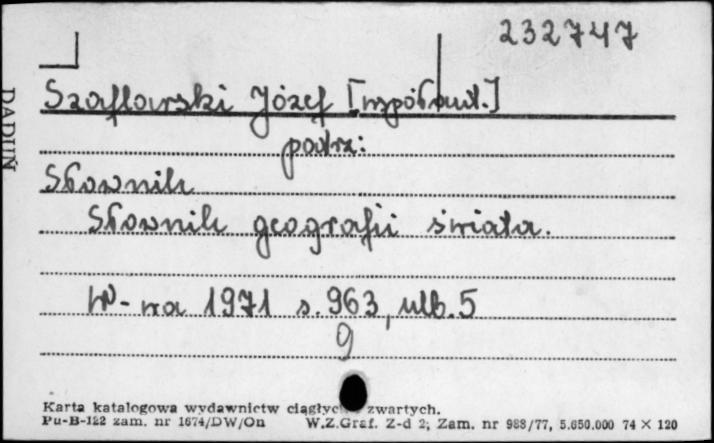 232747
Szaflarski Józef [współaut.]
patrz:
Słownik
Słownik geografii świata.
W-wa 1971 s. 963, nlb. 5
9
DADUŃ
Karta katalogowa wydawnictw ciągłych zwartych.
Pu-B-122 zam. nr 1674/DW/On W.Z.Graf. Z-d 2; Zam. nr 988/77, 5.650.000 74 × 120